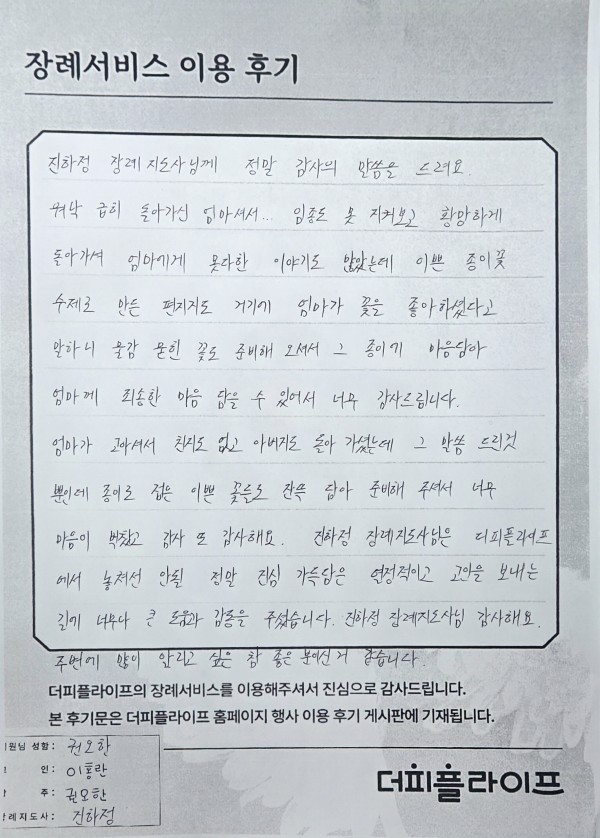 장례서비스 이용 후기
진하정 장례지도사님께 정말 감사의 말씀을 드려요.
워낙 급히 돌아가신 엄마셔서... 임종도 못 지켜보고 황망하게
돌아가셔 엄마에게 못다한 이야기도 많았는데 이쁜 종이꽃
수제로 만든 편지지도 거기에 엄마가 꽃을 좋아하셨다고
말하니 물감 묻힌 꽃도 준비해 오셔서 그 종이에 마음담아
엄마께 죄송한 마음 담을 수 있어서 너무 감사드립니다.
엄마가 고아셔서 친지도 없고 아버지도 돌아 가셨는데 그 말씀 드린것
뿐인데 종이로 접은 이쁜 꽃들로 잔뜩 담아 준비해 주셔서 너무
마음이 벅찼고 감사 또 감사해요. 진하정 장례지도사님은 더피플라이프
에서 놓쳐선 안될 정말 진심 가득담은 열정적이고 고인을 보내는
길에 너무나 큰 도움과 감동을 주셨습니다. 진하정 장례지도사님 감사해요.
주변에 많이 알리고 싶은 참 좋은 분이신거 같습니다.
더피플라이프의 장례서비스를 이용해주셔서 진심으로 감사드립니다.
본 후기문은 더피플라이프 홈페이지 행사 이용 후기 게시판에 기재됩니다.
원님 성함: 권오한
인: 이홍란
주: 권오한
례지도사: 진하정
더피플라이프